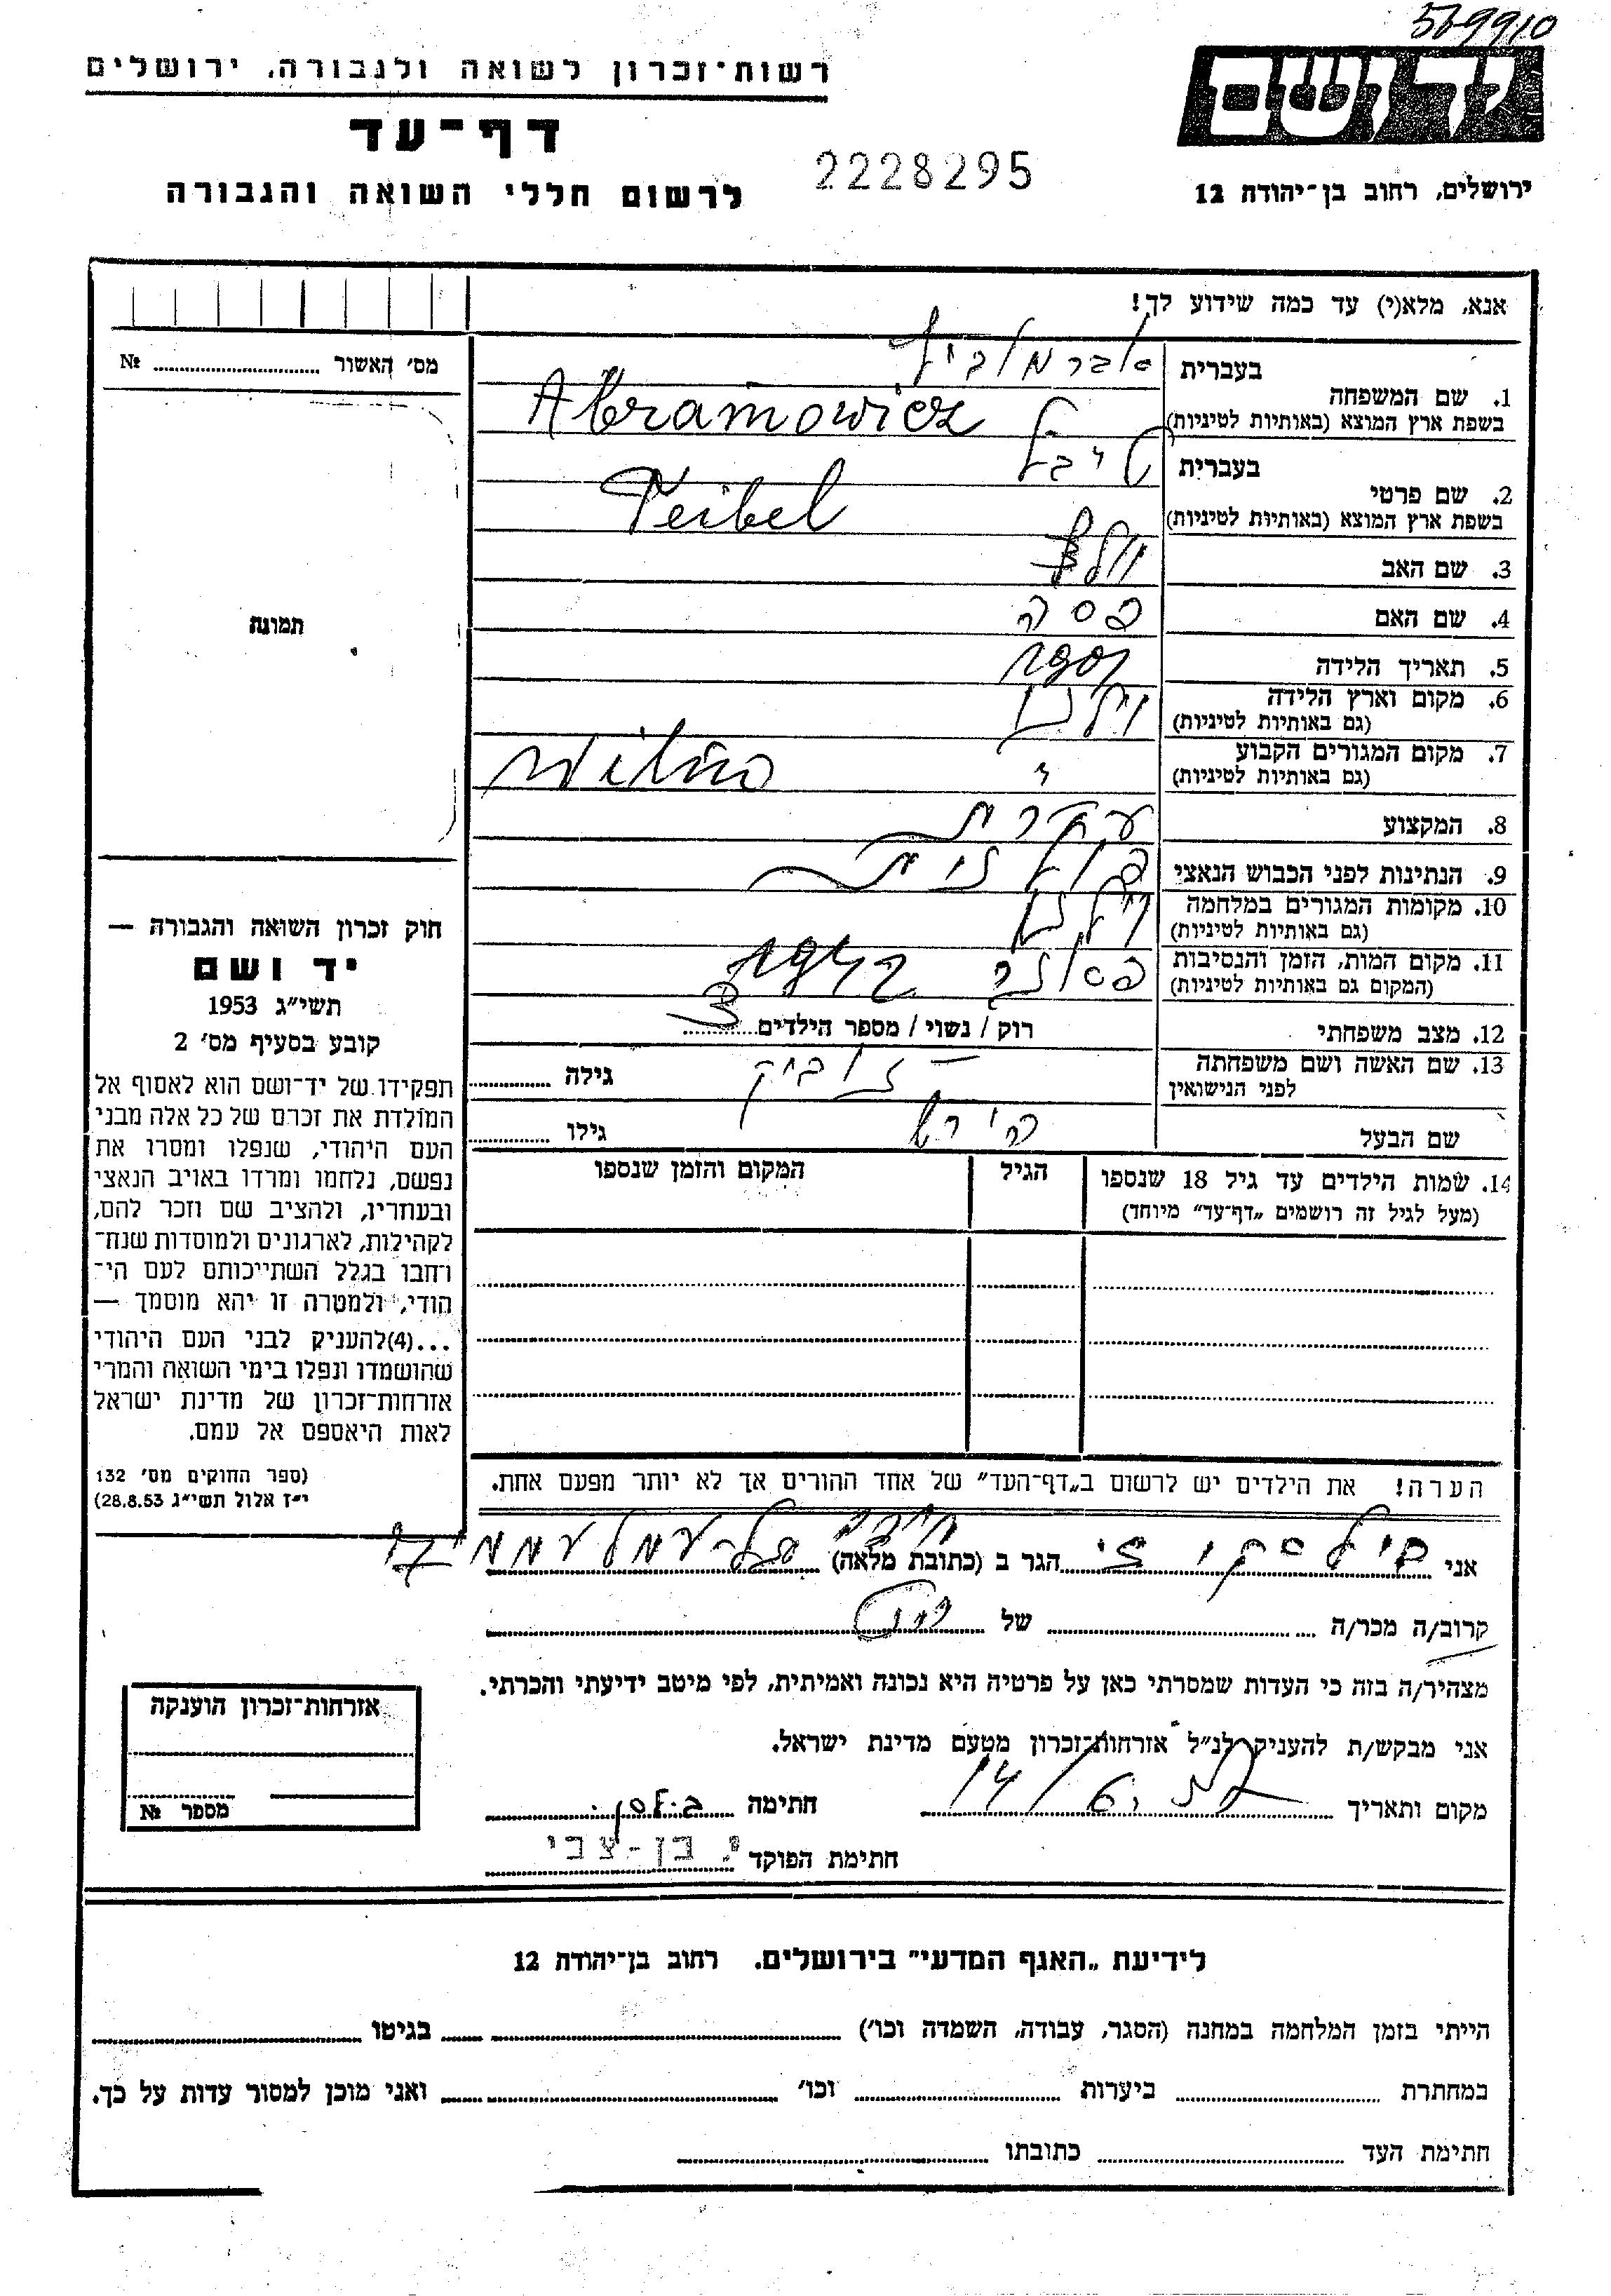 569910
יד ושם
רשות־זכרון לשואה ולגבורה, ירושלים
דף־עד
2228295
לרשום חללי השואה והגבורה
ירושלים, רחוב בן־יהודה 12
אנא, מלא(י) עד כמה שידוע לך!
מס׳ האשור № 
1. שם המשפחה
בעברית אברמוביץ
בשפת ארץ המוצא (באותיות לטיניות) Abramowicz
2. שם פרטי
בעברית טייבל
בשפת ארץ המוצא (באותיות לטיניות) Teibel
3. שם האב
4. שם האם פסה
5. תאריך הלידה
6. מקום וארץ הלידה וילנה
(גם באותיות לטיניות)
7. מקום המגורים הקבוע "
(גם באותיות לטיניות) Wilno
8. המקצוע עקרת
9. הנתינות לפני הכבוש הנאצי פולנית
10. מקומות המגורים במלחמה וילנה
(גם באותיות לטיניות)
11. מקום המות, הזמן והנסיבות פונר
(המקום גם באותיות לטיניות)
12. מצב משפחתי רוק / נשוי / מספר הילדים 3
13. שם האשה ושם משפחתה
לפני הנישואין גילה
שם הבעל הירש גילו
14. שמות הילדים עד גיל 18 שנספו
(מעל לגיל זה רושמים „דף־עד״ מיוחד)
הגיל
המקום והזמן שנספו
הערה! את הילדים יש לרשום ב„דף־העד״ של אחד ההורים אך לא יותר מפעם אחת.
תמונה
חוק זכרון השואה והגבורה —
יד ושם
תשי״ג 1953
קובע בסעיף מס׳ 2
תפקידו של יד־ושם הוא לאסוף אל
המולדת את זכרם של כל אלה מבני
העם היהודי, שנפלו ומסרו את
נפשם, נלחמו ומרדו באויב הנאצי
ובעוזריו, ולהציב שם וזכר להם,
לקהילות, לארגונים ולמוסדות שנח־
רחבו בגלל השתייכותם לעם הי־
הודי, ולמטרה זו יהא מוסמך —
...(4)להעניק לבני העם היהודי
שהושמדו ונפלו בימי השואה והמרי
אזרחות־זכרון של מדינת ישראל
לאות היאספם אל עמם.
(ספר החוקים מס׳ 132
י״ז אלול תשי״ג 28.8.53)
אני הגר ב (כתובת מלאה)
קרוב/ה מכר/ה של
מצהיר/ה בזה כי העדות שמסרתי כאן על פרטיה היא נכונה ואמיתית, לפי מיטב ידיעתי והכרתי.
אני מבקש/ת להעניק לנ״ל אזרחות־זכרון מטעם מדינת ישראל.
מקום ותאריך 14/6 חתימה
חתימת הפוקד י. בן-צבי
אזרחות־זכרון הוענקה
מספר №
לידיעת „האגף המדעי״ בירושלים. רחוב בן־יהודה 12
הייתי בזמן המלחמה במחנה (הסגר, עבודה, השמדה וכו׳) בגיטו
במחתרת ביערות וכו׳ ואני מוכן למסור עדות על כך.
חתימת העד כתובתו